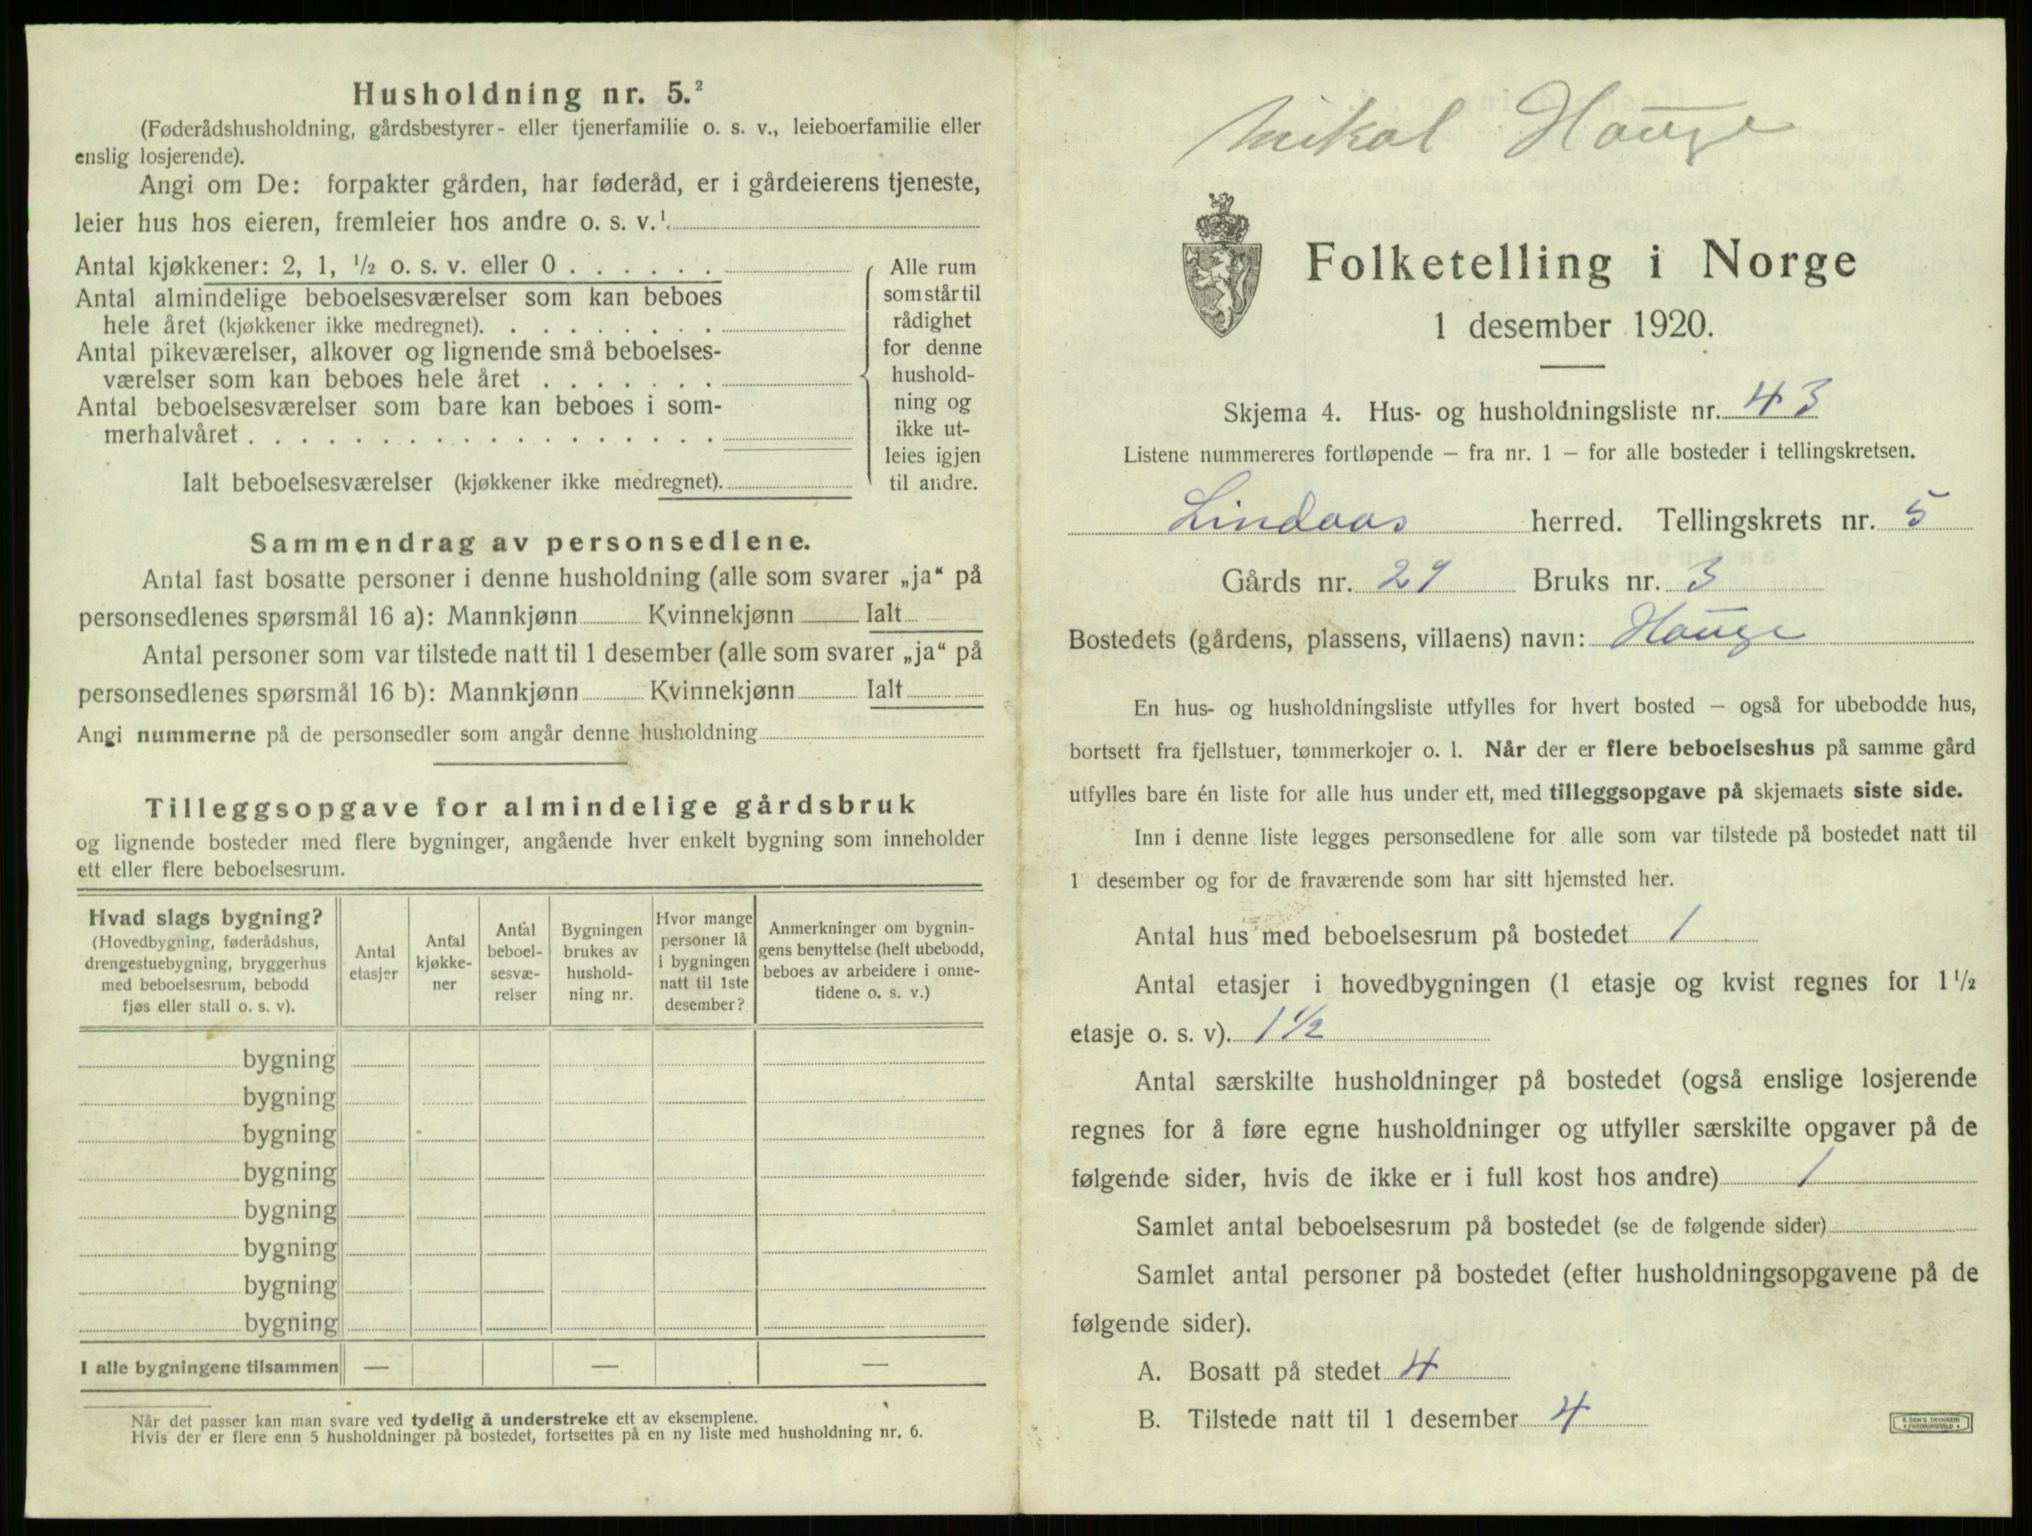 Husholdning nr. 5.²
(Føderådshusholdning, gårdsbestyrer- eller tjenerfamilie o. s. v., leieboerfamilie eller
enslig losjerende).
Angi om De: forpakter gården, har føderåd, er i gårdeierens tjeneste,
leier hus hos eieren, fremleier hos andre o. s. v.¹
Antal kjøkkener: 2, 1, ½ o. s. v. eller 0 . . . . . .
Antal almindelige beboelsesværelser som kan beboes
hele året (kjøkkener ikke medregnet). . . . . . . . .
Antal pikeværelser, alkover og lignende små beboelses-
værelser som kan beboes hele året . . . . . . .
Antal beboelsesværelser som bare kan beboes i som-
merhalvåret . . . . . . . . . . . . . . . . . .
Ialt beboelsesværelser (kjøkkener ikke medregnet).
Alle rum
som står til
rådighet
for denne
hushold-
ning og
ikke ut-
leies igjen
til andre.
Sammendrag av personsedlene.
Antal fast bosatte personer i denne husholdning (alle som svarer „ja“ på
personsedlenes spørsmål 16 a): Mannkjønn Kvinnekjønn Ialt
Antal personer som var tilstede natt til 1 desember (alle som svarer „ja“ på
personsedlenes spørsmål 16 b): Mannkjønn Kvinnekjønn Ialt
Angi nummerne på de personsedler som angår denne husholdning
Tilleggsopgave for almindelige gårdsbruk
og lignende bosteder med flere bygninger, angående hver enkelt bygning som inneholder
ett eller flere beboelsesrum.
Hvad slags bygning?
(Hovedbygning, føderådshus,
drengestuebygning, bryggerhus
med beboelsesrum, bebodd
fjøs eller stall o. s. v).
Antal
etasjer
Antal
kjøkke-
ner
Antal
beboel-
sesvæ-
relser
Bygningen
brukes av
hushold-
ning nr.
Hvor mange
personer lå
i bygningen
natt til 1ste
desember?
Anmerkninger om bygnin-
gens benyttelse (helt ubebodd,
beboes av arbeidere i onne-
tidene o. s. v.)
bygning
bygning
bygning
bygning
bygning
bygning
bygning
bygning
I alle bygningene tilsammen — — —
Når det passer kan man svare ved tydelig å understreke ett av eksemplene.
Hvis der er flere enn 5 husholdninger på bostedet, fortsettes på en ny liste med husholdning nr. 6.
Mikal Hauge
Folketelling i Norge
1 desember 1920.
Skjema 4. Hus- og husholdningsliste nr. 43
Listene nummereres fortløpende – fra nr. 1 – for alle bosteder i tellingskretsen.
Lindaas herred. Tellingskrets nr. 5
Gårds nr. 29 Bruks nr. 3
Bostedets (gårdens, plassens, villaens) navn: Hauge
En hus- og husholdningsliste utfylles for hvert bosted – også for ubebodde hus,
bortsett fra fjellstuer, tømmerkojer o. l. Når der er flere beboelseshus på samme gård
utfylles bare én liste for alle hus under ett, med tilleggsopgave på skjemaets siste side.
Inn i denne liste legges personsedlene for alle som var tilstede på bostedet natt til
1 desember og for de fraværende som har sitt hjemsted her.
Antal hus med beboelsesrum på bostedet 1
Antal etasjer i hovedbygningen (1 etasje og kvist regnes for 1½
etasje o. s. v). 1½
Antal særskilte husholdninger på bostedet (også enslige losjerende
regnes for å føre egne husholdninger og utfyller særskilte opgaver på de
følgende sider, hvis de ikke er i full kost hos andre) 1
Samlet antal beboelsesrum på bostedet (se de følgende sider)
Samlet antal personer på bostedet (efter husholdningsopgavene på de
følgende sider).
A. Bosatt på stedet 4
B. Tilstede natt til 1 desember 4